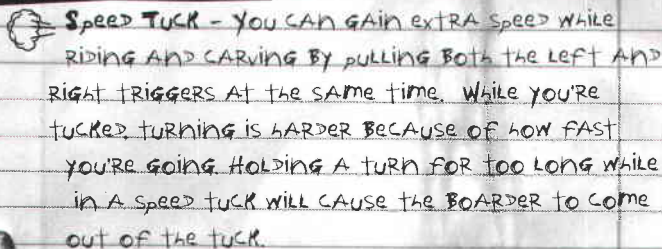 Speed Tuck - You can gain extra speed while
riding and carving by pulling both the left and
right triggers at the same time. While you're
tucked, turning is harder because of how fast
you're going. Holding a turn for too long while
in a speed tuck will cause the boarder to come
out of the tuck.